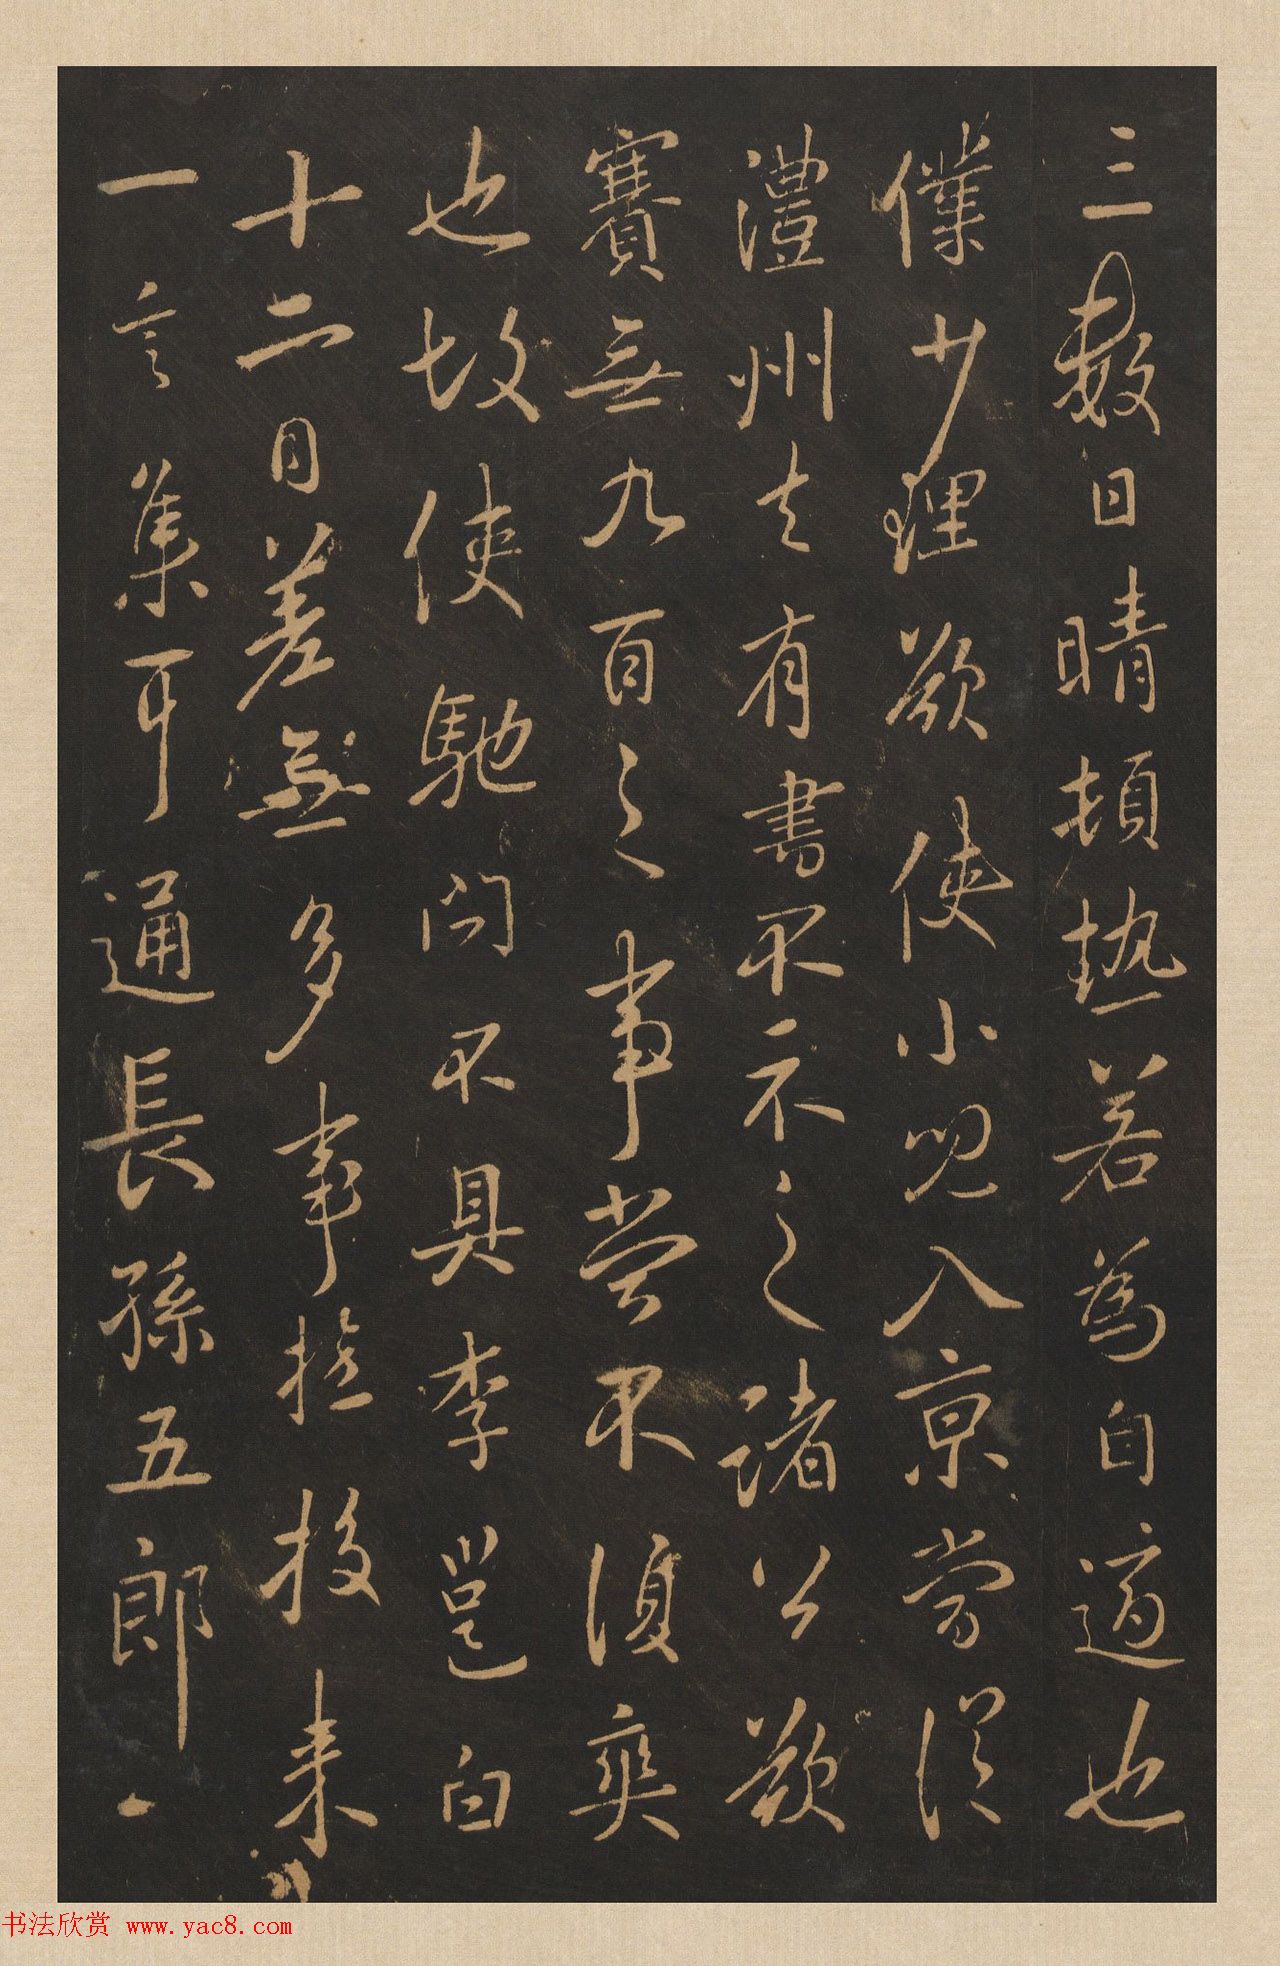 三數日晴頓熱若為自適也
僕少理欲使小兒入京當從
澧州去有書不示之諸公欲
賽無九百之事當不復爽
也故使馳問不具李邕白
十二日差無多事投來
一言集耳通長孫五郎
书法欣赏 www.yac8.com